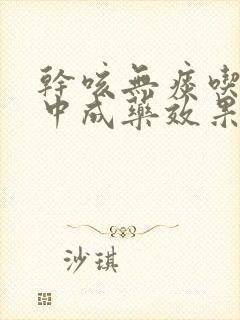 幹咳無痰喫
中成藥效果
沙琪